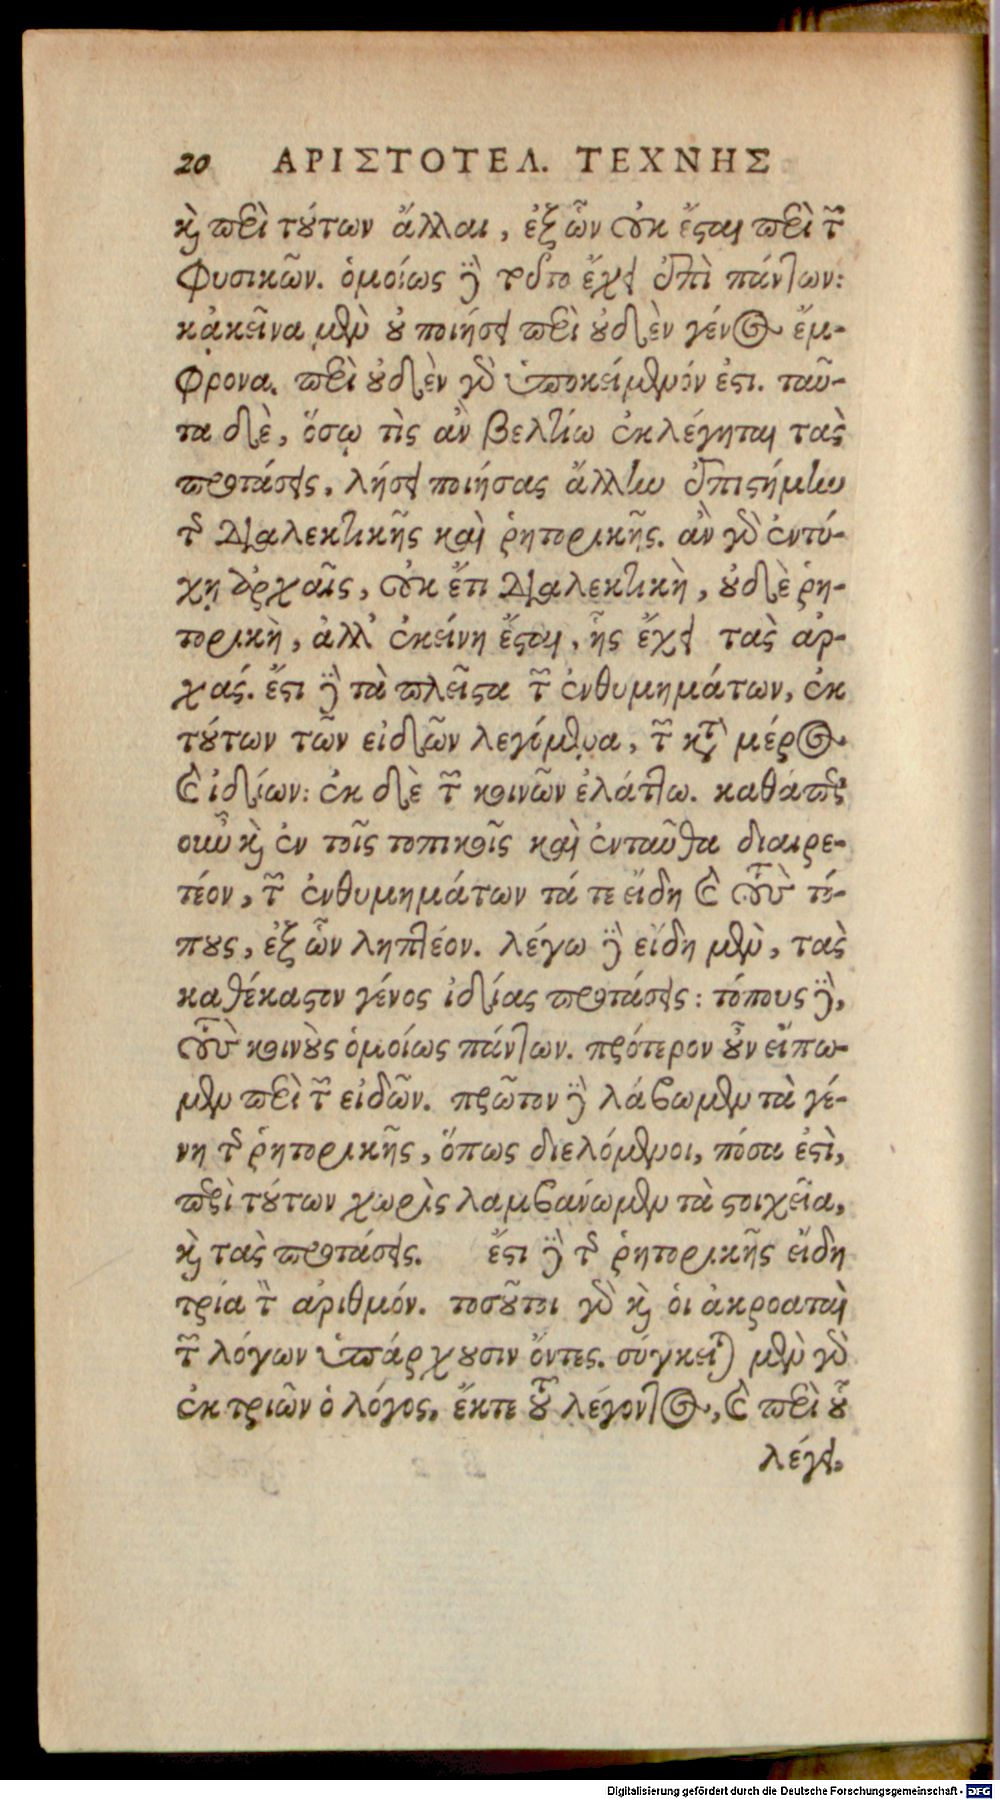 20 ΑΡΙΣΤΟΤΕΛ. ΤΕΧΝΗΣ
καὶ περὶ τούτων ἄλλαι, ἐξ ὧν οὐκ ἔσται περὶ τῶν
φυσικῶν. ὁμοίως δὲ τοῦτο ἔχει ἐπὶ πάντων:
κἀκεῖνα μὲν οὐ ποιήσει περὶ οὐδὲν γένος ἔμ-
φρονα. περὶ οὐδὲν γὰρ ὑποκείμενόν ἐστι. ταῦ-
τα δὲ, ὅσῳ τὶς ἂν βελτίω ἐκλέγηται τὰς
προτάσεις, λήσει ποιήσας ἄλλην ἐπιστήμην
τῆς διαλεκτικῆς καὶ ῥητορικῆς. ἂν γὰρ ἐντύ-
χῃ ἀρχαῖς, οὐκ ἔτι διαλεκτικὴ, οὐδὲ ῥη-
τορικὴ, ἀλλ' ἐκείνη ἔσται, ἧς ἔχει τὰς ἀρ-
χάς. ἔστι δὲ τὰ πλεῖστα τῶν ἐνθυμημάτων, ἐκ
τούτων τῶν εἰδῶν λεγόμενα, τῶν κατὰ μέρος
καὶ ἰδίων: ἐκ δὲ τῶν κοινῶν ἐλάττω. καθάπερ
οὖν καὶ ἐν τοῖς τοπικοῖς καὶ ἐνταῦθα διαιρε-
τέον, τῶν ἐνθυμημάτων τά τε εἴδη καὶ τοὺς τό-
πους, ἐξ ὧν ληπτέον. λέγω δὲ εἴδη μὲν, τὰς
καθέκαστον γένος ἰδίας προτάσεις: τόπους δὲ,
τοὺς κοινοὺς ὁμοίως πάντων. πρότερον οὖν εἴπω-
μεν περὶ τῶν εἰδῶν. πρῶτον δὲ λάβωμεν τὰ γέ-
νη τῆς ῥητορικῆς, ὅπως διελόμενοι, πόσα ἐστὶ,
περὶ τούτων χωρὶς λαμβάνωμεν τὰ στοιχεῖα,
καὶ τὰς προτάσεις. ἔστι δὲ τῆς ῥητορικῆς εἴδη
τρία τὸν ἀριθμόν. τοσοῦτοι γὰρ καὶ οἱ ἀκροαταὶ
τῶν λόγων ὑπάρχουσιν ὄντες. σύγκειται μὲν γὰρ
ἐκ τριῶν ὁ λόγος, ἔκ τε τοῦ λέγοντος, καὶ περὶ οὗ
λέγει,
Digitalisierung gefördert durch die Deutsche Forschungsgemeinschaft - DFG